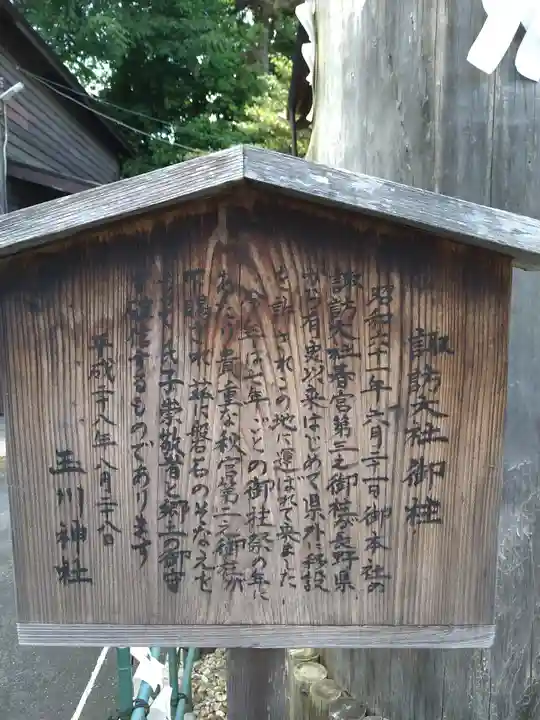 諏訪大社御柱
昭和六十一年六月二十一日御本社の
諏訪大社春宮第三之御柱が長野県
では有史以来はじめて県外に移設
を許されこの地に運ばれて来ました
今年は七年ごとの御柱祭の年に
あたり貴重な秋宮第二之御柱が
下賜され茲に磐石のそなえを
もって氏子崇敬者と郷土の御守
するものであります
平成二十八年八月二十八日
玉川神社